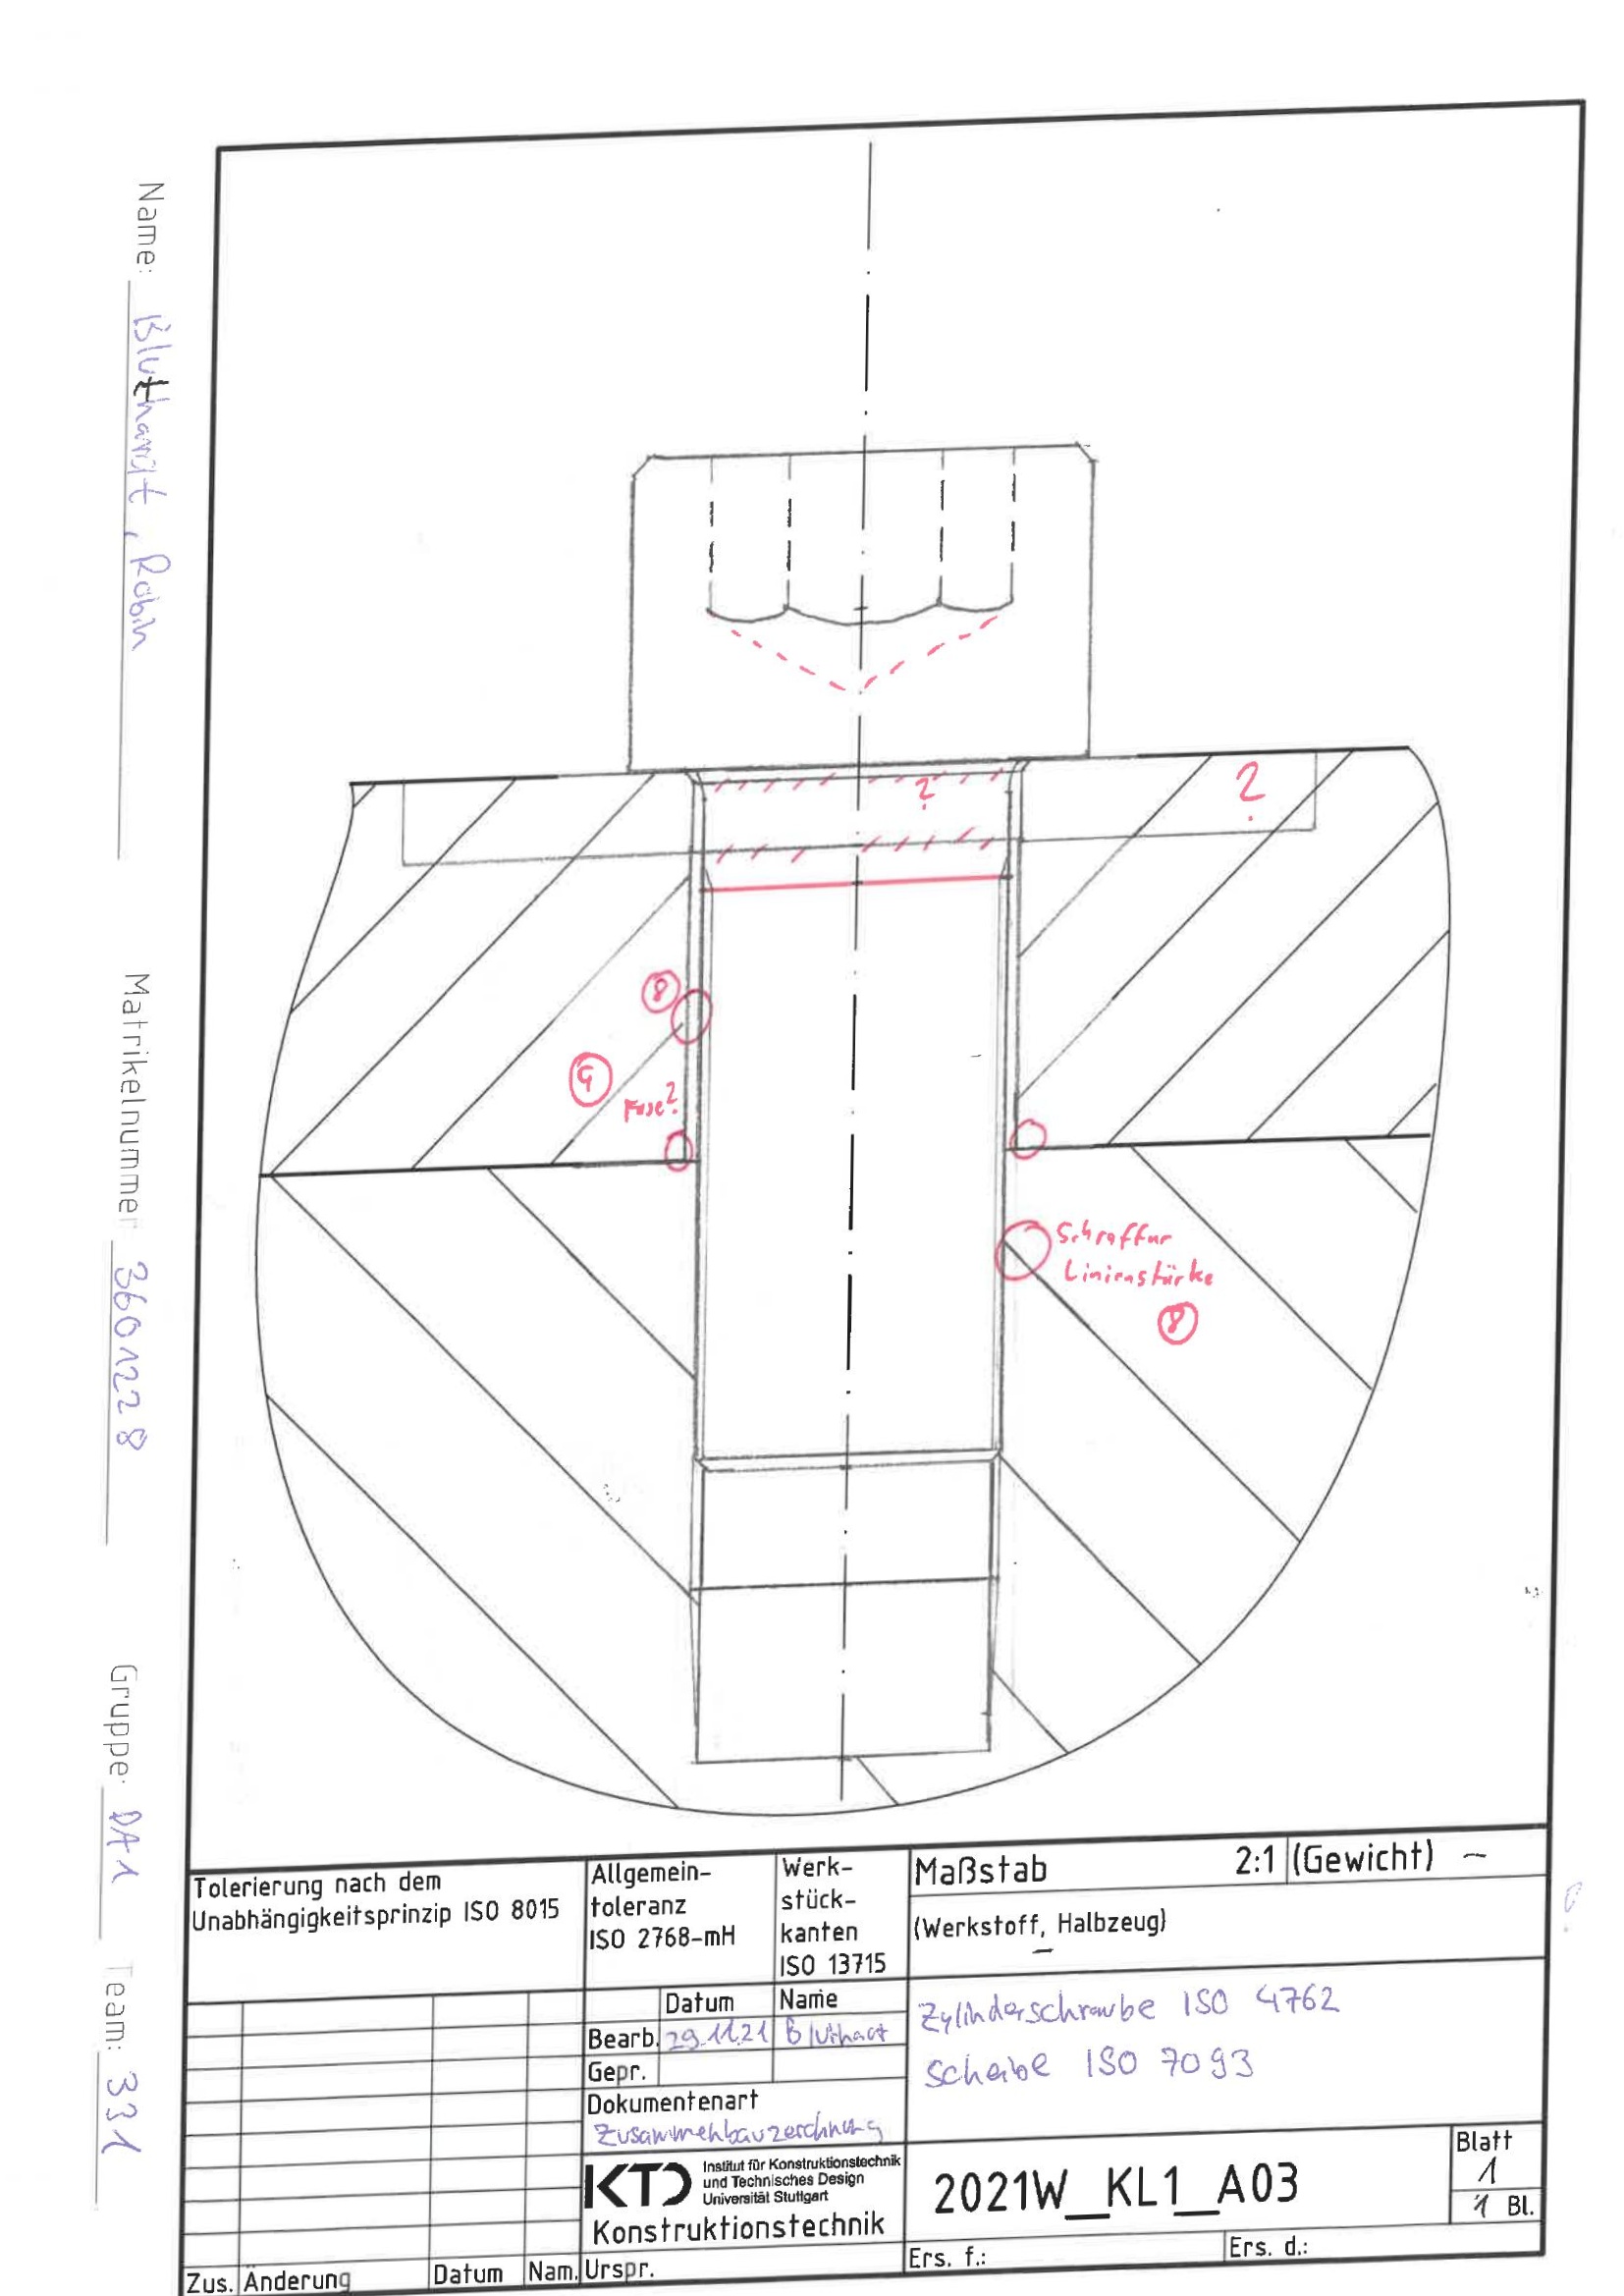 Name: Bluthardt, Robin
Matrikelnummer 3601228
Gruppe: DA1
Team: 331
?
?
8
9
Fase?
Schraffur
Linienstärke
8
Tolerierung nach dem
Unabhängigkeitsprinzip ISO 8015
Allgemein-
toleranz
ISO 2768-mH
Werk-
stück-
kanten
ISO 13715
Maßstab 2:1 (Gewicht) –
(Werkstoff, Halbzeug)
–
Datum Name
Bearb. 29.11.21 Bluthardt
Gepr.
Zylinderschraube ISO 4762
Scheibe ISO 7093
Dokumentenart
Zusammenbauzeichnung
KTD
Institut für Konstruktionstechnik
und Technisches Design
Universität Stuttgart
Konstruktionstechnik
2021W_KL1_A03
Blatt
1
1 Bl.
Zus. Änderung Datum Nam. Urspr. Ers. f.: Ers. d.: